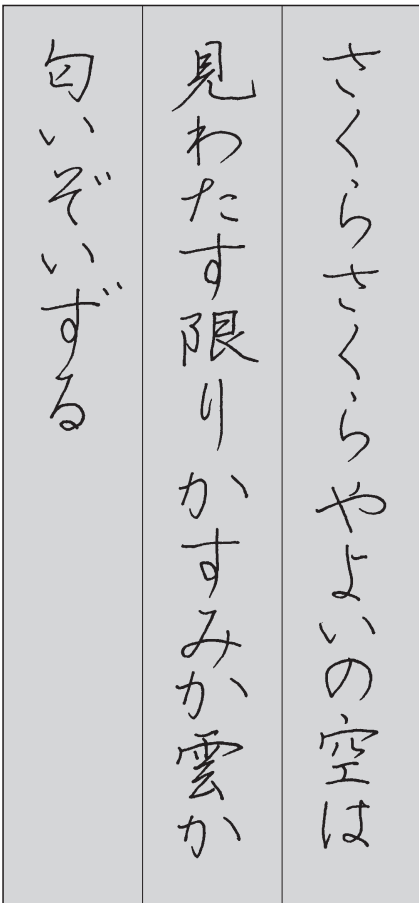 さくらさくらやよいの空は
見わたす限りかすみか雲か
匂いぞいずる